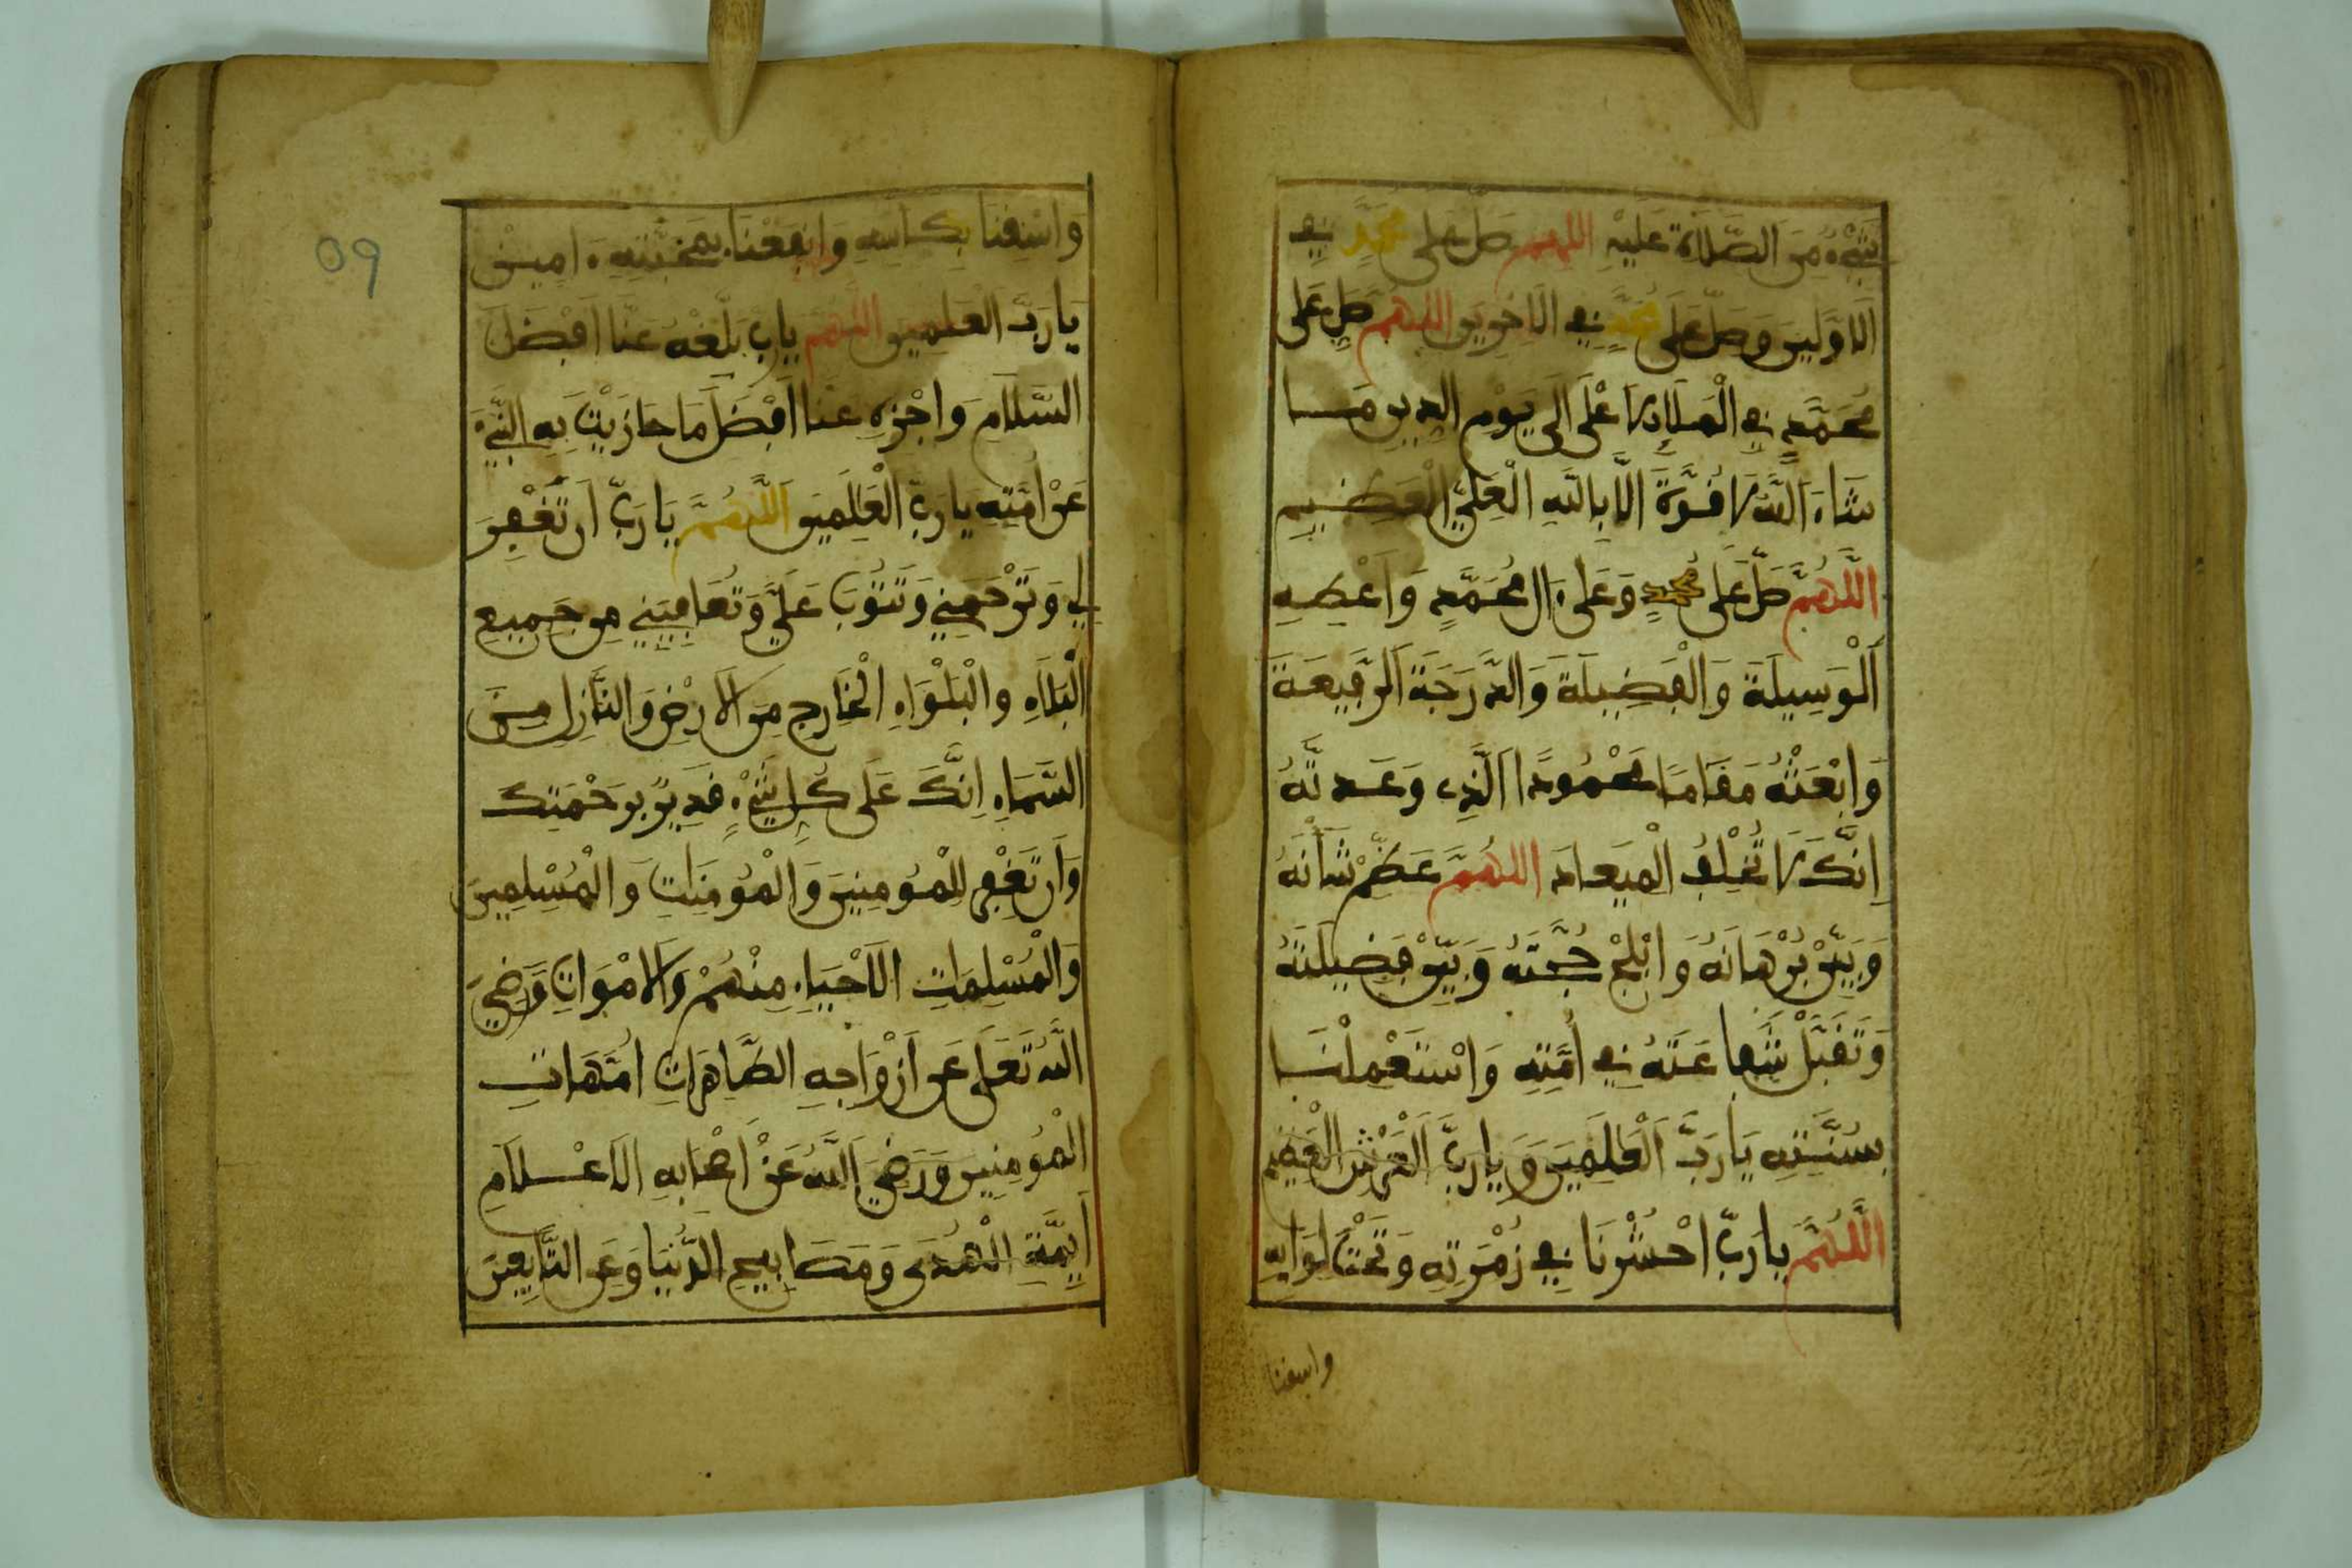 شَيْءٌ مِنَ الصَّلَاةِ عَلَيْهِ اللهم صل على محمدٍ في
الَاوَّلِينَ وَصَلِّ عَلَى محمدٍ في الَاخِرِينَ اللهم صَلِّ عَلَى
مُحَمَّدٍ في الْمَلَإِ الَاعْلَى إلَى يَوْمِ الدِينِ مَا
شَاءَ اللَّهُ لَا قُوَّةَ إلَّا بِاللَّهِ الْعَلِيِّ الْعَظِيمِ
اللَّهُمَّ صَلِّ عَلَى مُحمدٍ وَعَلَى ءَالِ مُحَمَّدٍ وَأَعْطِهِ
الْوَسِيلَةَ وَالْفَضِيلَةَ وَالدَّرَجَةَ الرَّفِيعَةَ
وَابْعَثْهُ مَقَامًا مَحْمُودًا الَّذِي وَعَدتَّهُ
إِنَّكَ لَا تُخْلِفُ الْمِيعَادَ اللهُمَّ عَظِّمْ شَأْنَهُ
وَبَيِّنْ بُرْهَانَهُ وَابْلِجْ حُجَّتَهُ وَبَيِّنْ فَضِيلَتَهُ
وَتَقَبَّلْ شَفَاعَتَهُ في أُمَّتِهِ وَاسْتَعْمِلْنَا
بِسُنَّتِهِ يَا رَبَّ الْعَالَمِينَ وَيَا رَبَّ الْعَرْشِ الْعَظِيمِ
اللَّهُمَّ يا رَبِّ احْشُرْنَا في زُمْرَتِهِ وَتَحْتَ لِوَائِهِ
واسقنا
وَاسْقِنَا بِكَأْسِهِ وَانْفَعْنَا بِمَحَبَّتِهِ ءَامِينْ
يَا رَبَّ الْعَلَمِينَ اللَّهُمَّ يا رَبِّ بَلِّغْهُ عَنَّا أَفْضَلَ
السَّلَامِ وَاجْزِهِ عَنَّا أَفْضَلَ مَا جَازَيْتَ بِهِ النَّبِيءَ
عَنْ أُمَّتِهِ يا رَبَّ الْعَالَمِينَ اللَّهُمَّ يَا رَبِّ أَن تَغْفِرَ
لِي وَتَرْحَمَنِي وَتَتُوبَ عَلَيَّ وَتُعَافِيَنِي مِن جَمِيعِ
الْبَلَاءِ والْبَلْوَاءِ الْخَارِجِ مِنَ الَارْضِ وَالنَّازِلِ مِنَ
السَّمَاءِ إِنَّكَ عَلَى كُلِّ شَيْءٍ قَدِيرٌ بِرَحْمَتِكَ
وَأَن تَغْفِرَ لِلْمُومِنِينَ وَالْمُومِنَاتِ وَالْمُسْلِمِينَ
وَالْمُسْلِمَاتِ الَاحْيَاءِ مِنْهُمْ وَالَامْوَاتِ وَرَضِيَ
اللَّهُ تَعَلَى عَن أَزْوَاجِهِ الطَّاهِرَاتِ أُمَّهَاتِ
الْمُومِنِينَ وَرَضِيَ اللَّهُ عَنْ أَصْحَابِهِ الَاعْلَامِ
أَيِمَّةِ الْهُدَى وَمَصَابِيحِ الدُّنْيَا وَعَنِ التَّابِعِينَ
59